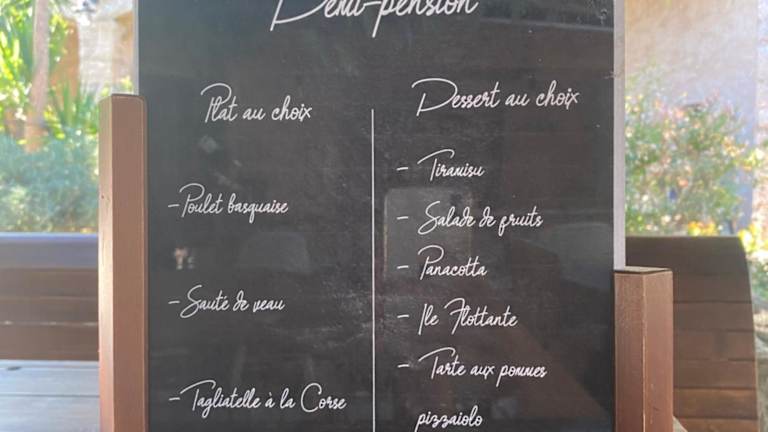 Demi-pension
Plat au choix
-Poulet basquaise
-Sauté de veau
-Tagliatelle à la Corse
Dessert au choix
- Tiramisu
- Salade de fruits
- Panacotta
- Ile Flottante
- Tarte aux pommes
pizzaiolo